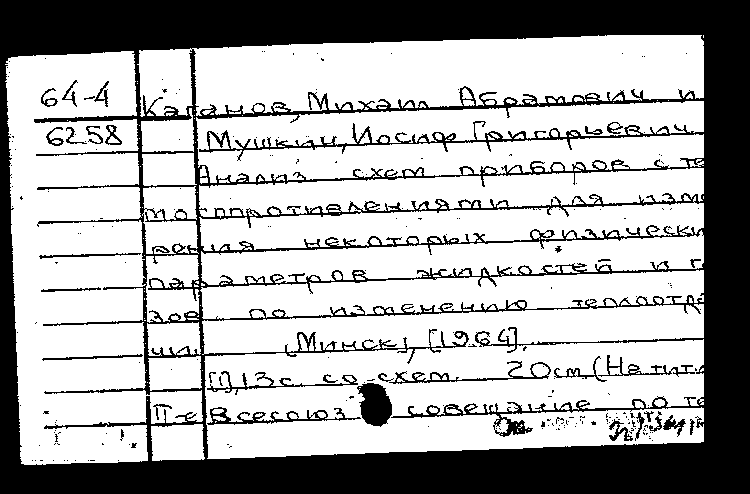 64-4 Каганов, Михаил Абрамович и
6258 Мушкин, Иосиф Григорьевич
Анализ схем приборов с те
мосопротивлениями для изме
рения некоторых физически
параметров жидкостей и га
зов по изменению теплоотда
чи. [Минск], [1964].
[1], 13 с. со схем. 20 см (На тит.
II-е Всесоюз совещание по те